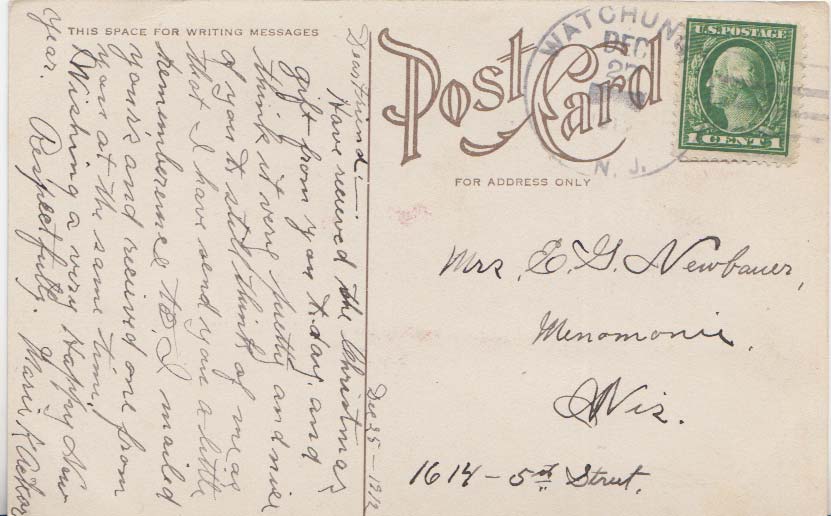 THIS SPACE FOR WRITING MESSAGES
Dear Friend:—
Have recieved the Christmas
gift from you to-day, and
think it very pretty and nice
of you to still think of me as
that I have send you a little
rememberence to. I mailed
your's and recieved one from
you at the same time.
Wishing a very Happy New
year. Respectfully,
Marie
Dec 25 – 1912
Post Card
FOR ADDRESS ONLY
WATCHUN
DEC
27
N. J.
U.S. POSTAGE
1 CENT 1
Mrs. E. G. Newbauer,
Menomonie,
Wis.
1614 – 5th Street.